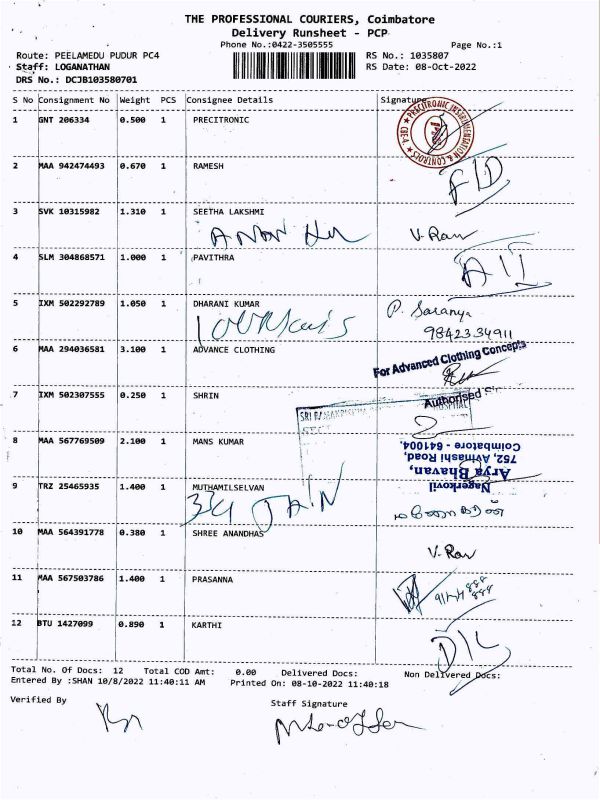 THE PROFESSIONAL COURIERS, Coimbatore
Delivery Runsheet - PCP
Phone No.:0422-3505555 Page No.:1
Route: PEELAMEDU PUDUR PC4 RS No.: 1035807
Staff: LOGANATHAN RS Date: 08-Oct-2022
DRS No.: DCJB103580701
S No Consignment No Weight PCS Consignee Details Signature
1 GNT 206334 0.500 1 PRECITRONIC
PRECITRONIC INSTRUMENTATION & CONTROLS
2 MAA 942474493 0.670 1 RAMESH
3 SVK 10315982 1.310 1 SEETHA LAKSHMI
V. Rav
4 SLM 304868571 1.000 1 PAVITHRA
5 IXM 502292789 1.050 1 DHARANI KUMAR P. Saranya
9842334911
6 MAA 294036581 3.100 1 ADVANCE CLOTHING
For Advanced Clothing Concepts
7 IXM 502307555 0.250 1 SHRIN Authorised
SRI
HOSPITAL
8 MAA 567769509 2.100 1 MANS KUMAR
Nagerkovil
Arya Bhavan,
752, Avinashi Road,
Coimbatore - 641004.
9 TRZ 25465935 1.400 1 MUTHAMILSELVAN
334 JAIN
10 MAA 564391778 0.380 1 SHREE ANANDHAS
V. Rav
11 MAA 567503786 1.400 1 PRASANNA
12 BTU 1427099 0.890 1 KARTHI
Total No. Of Docs: 12 Total COD Amt: 0.00 Delivered Docs: Non Delivered Docs:
Entered By :SHAN 10/8/2022 11:40:11 AM Printed On: 08-10-2022 11:40:18
Verified By Staff Signature